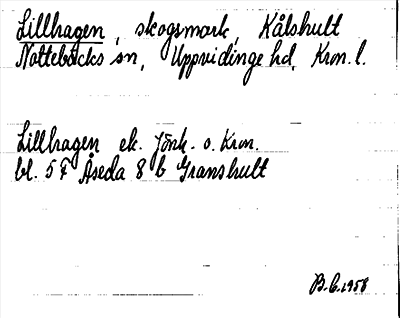 Lillhagen, skogsmark, Kålshult
Nottebäcks sn, Uppvidinge hd, Kron. l.
Lillhagen ek. Jönk. o. Kron.
bl. 5 F Åseda 8 b Granshult
B.C. 1958